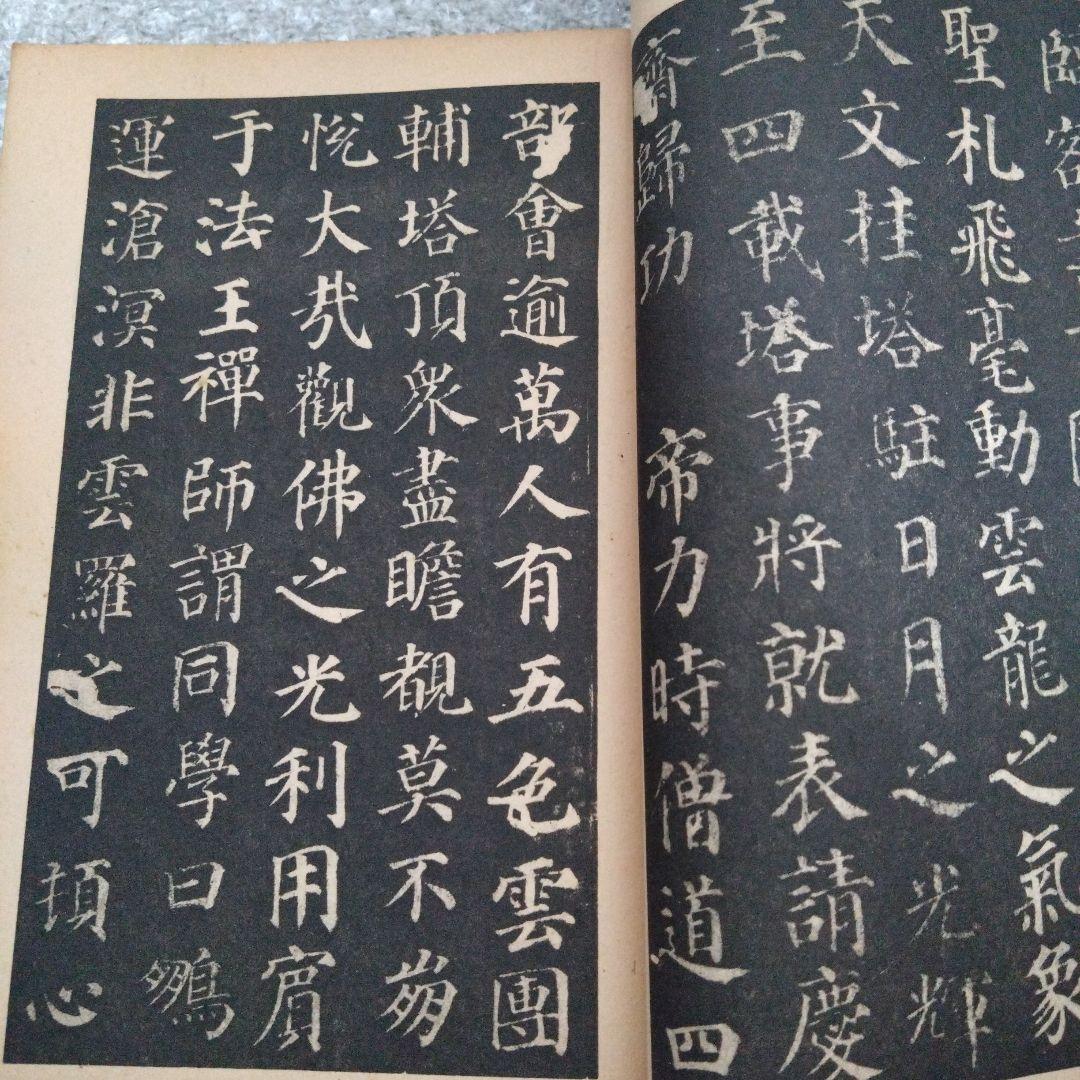 聖札飛毫動雲龍之氣象
天文挂塔駐日月之光輝
至四載塔事將就表請慶
齋歸功帝力時僧道四
部會逾萬人有五色雲團
輔塔頂衆盡瞻覩莫不崩
悅大哉觀佛之光利用賔
于法王禪師謂同學曰鵬
運滄溟非雲羅之可頓心